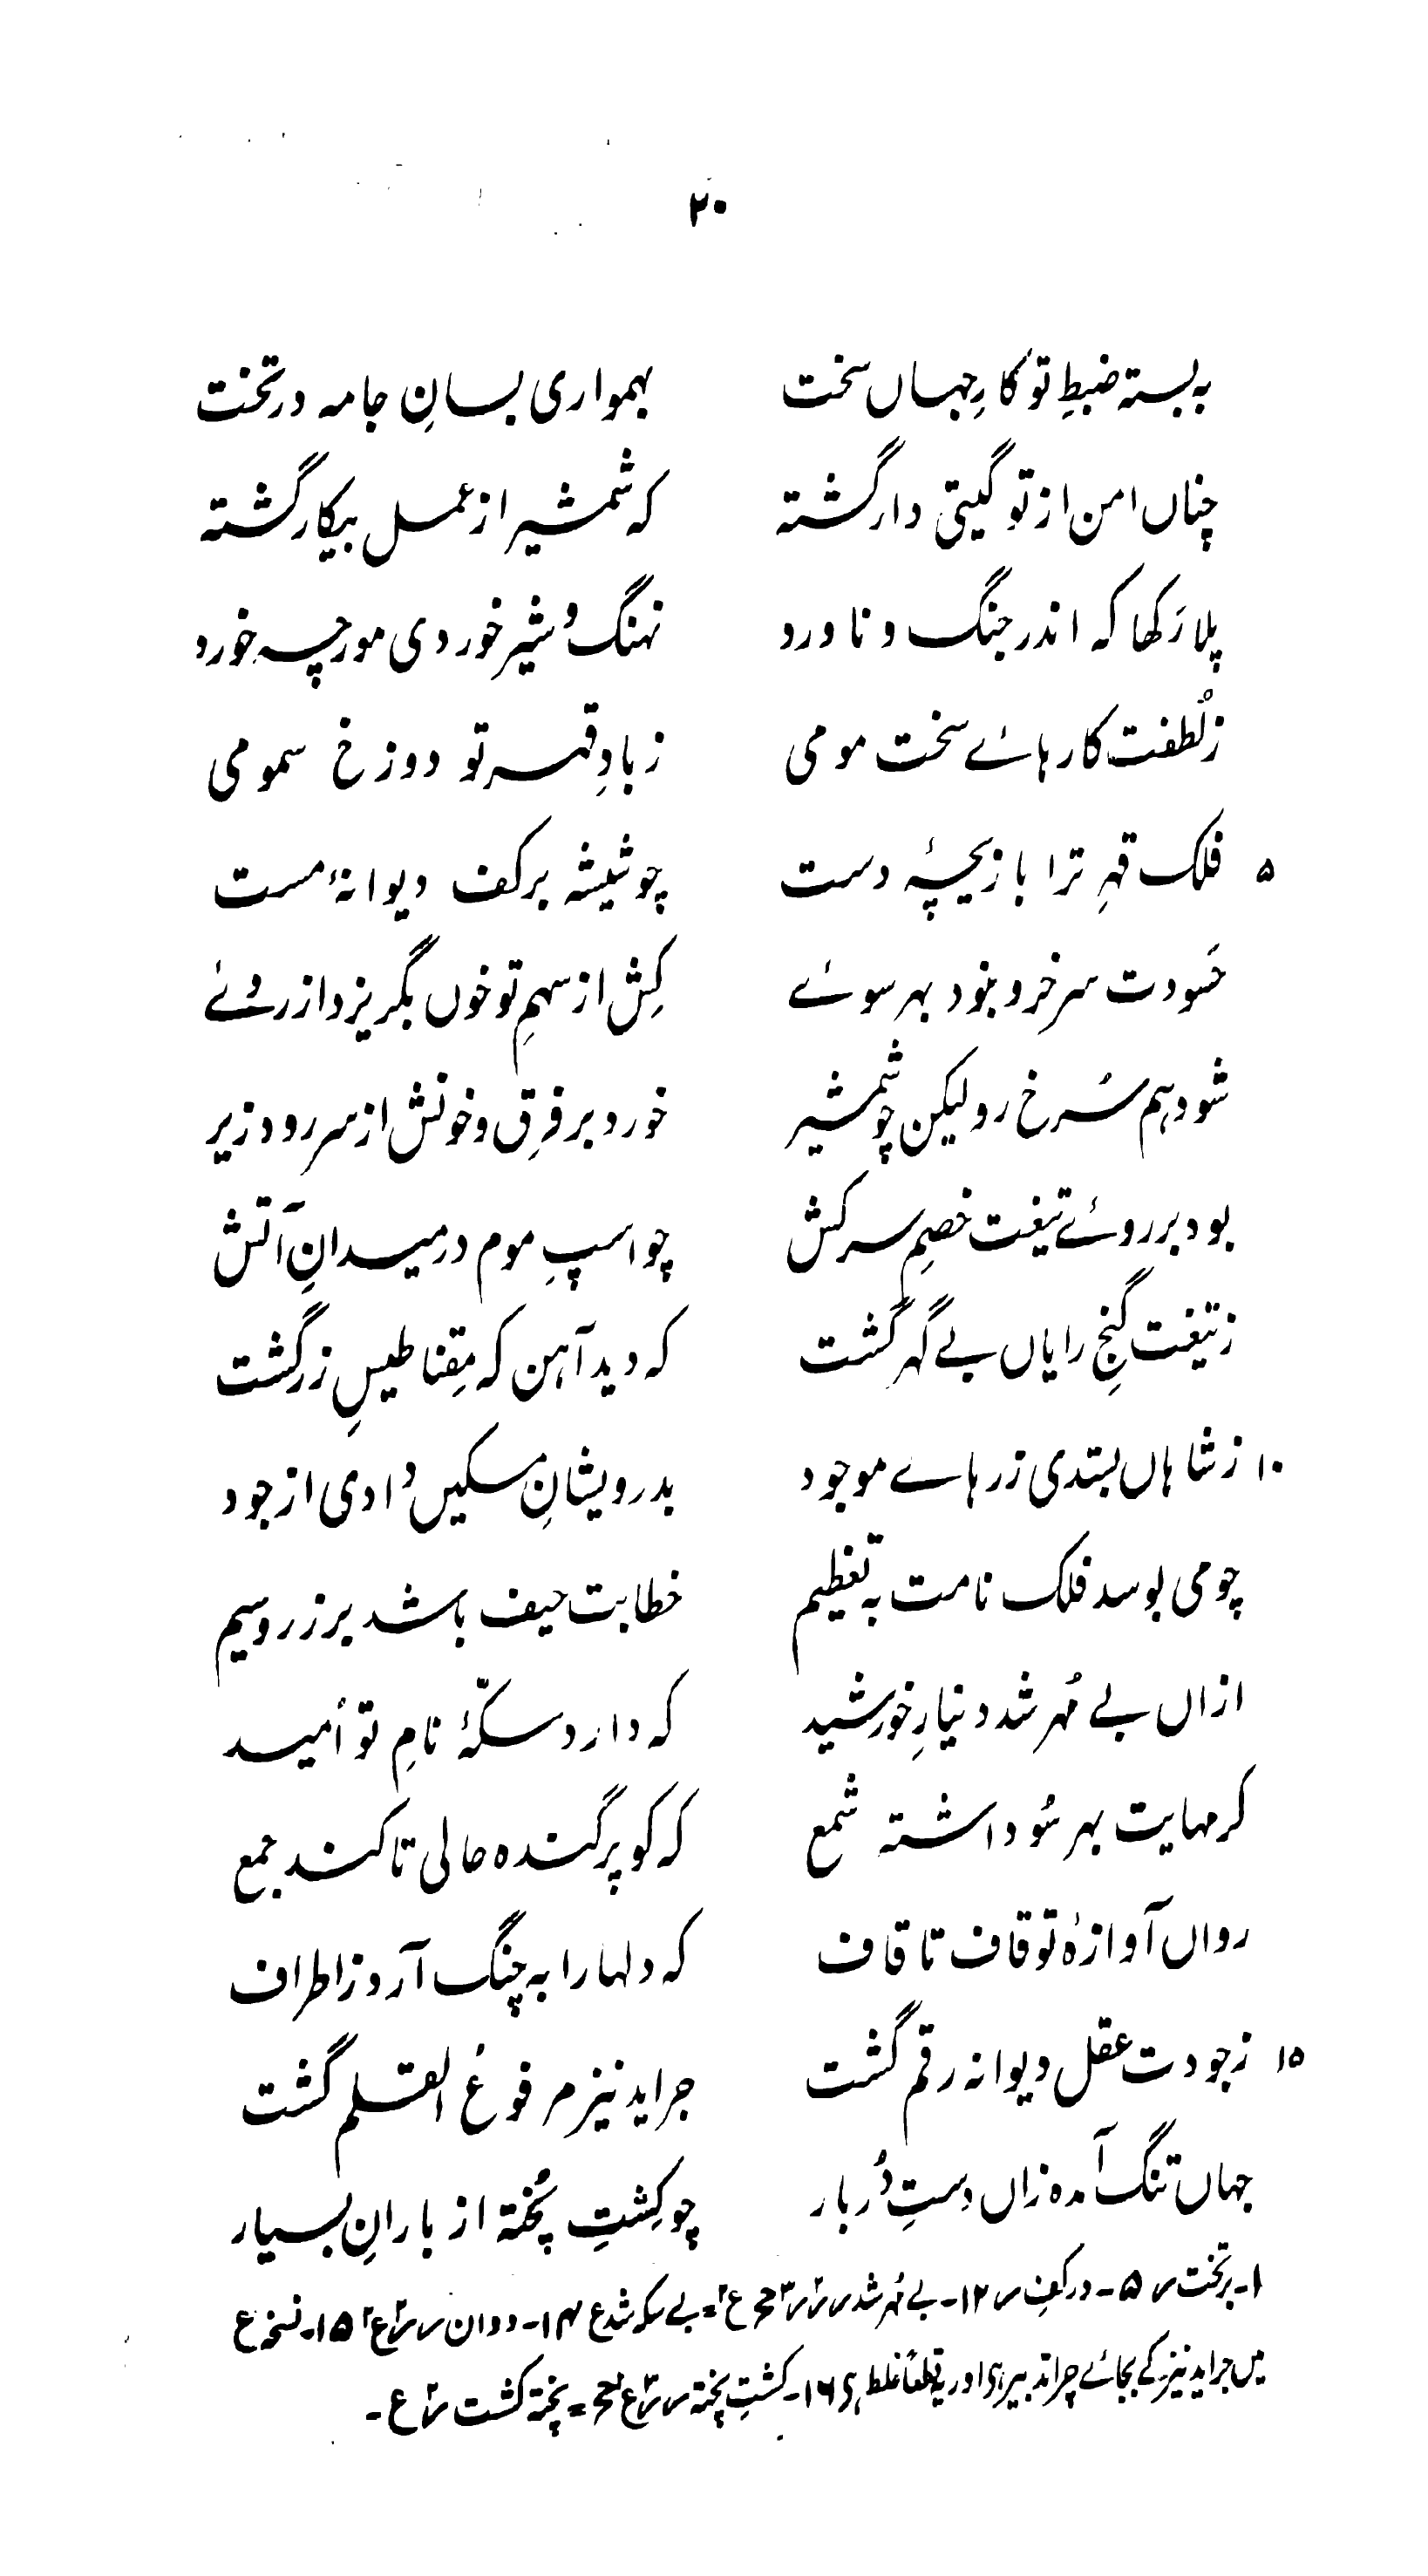 ۲۰
بہ بستہ ضبطِ تو کارِ جہاں سخت بہمواری بسانِ جامہ در تخت
چناں امن از تو گیتی دار گشتہ کہ شمشیر از عمل بیکار گشتہ
پلارَکھا کہ اندر جنگ و ناورد نہنگ و شیر خوردی مورچہ خورد
ز لُطفت کارہائے سخت مومی ز بادِ قہر تو دوزخ سمومی
۵ فلک قہرِ ترا بازیچۂ دست چو شیشہ بر کف دیوانۂ مست
حَسودت سرخرو بنود بہر سوئے کِش از سہمِ تو خوں بگریزد از روئے
شود ہم سُرخ رو لیکن چو شمشیر خورد بر فرق و خونش از سر رود زیر
بود بر روئے تیغت خصمِ سرکش چو اسپِ موم در میدانِ آتش
ز تیغت گنجِ رایاں بے گہر گشت کہ دید آہن کہ مِقناطیسِ زر گشت
۱۰ ز شاہاں بستدی زرہاے موجود بدرویشانِ مسکیں دادی از جود
چو می بوسد فلک نامت بہ تعظیم خطابت حیف باشد بر زر و سیم
ازاں بے مُہر شد دینارِ خورشید کہ دارد سکّۂ نامِ تو اُمید
کرمہایت بہر سُو داشتہ شمع کہ کو پرگندہ حالی تا کند جمع
رواں آوازۂ تو قاف تا قاف کہ دلہا را بہ چنگ آرد ز اطراف
۱۵ ز جودت عقل دیوانہ رقم گشت جراید نیز مرفوعُ القلم گشت
جہاں تنگ آمدہ زاں دستِ دُربار چو کِشتِ پُختہ از بارانِ بسیار
۱۔ بر تخت س ۵۔ در کفِ س ۱۲۔ بے مُہر شد س س۲ س۳ ح ع۲ = بے سکہ شد ع ۱۴۔ دوان س س۲ ع۲ ۱۵۔ نسخہ ع
میں جراید نیز کے بجائے چراتد بیر ہی اور یہ قطعاً غلط ہی ۱۶۔ کشتِ پختہ س س۲ ع ح = پختہ کشت س۲ ع ۔